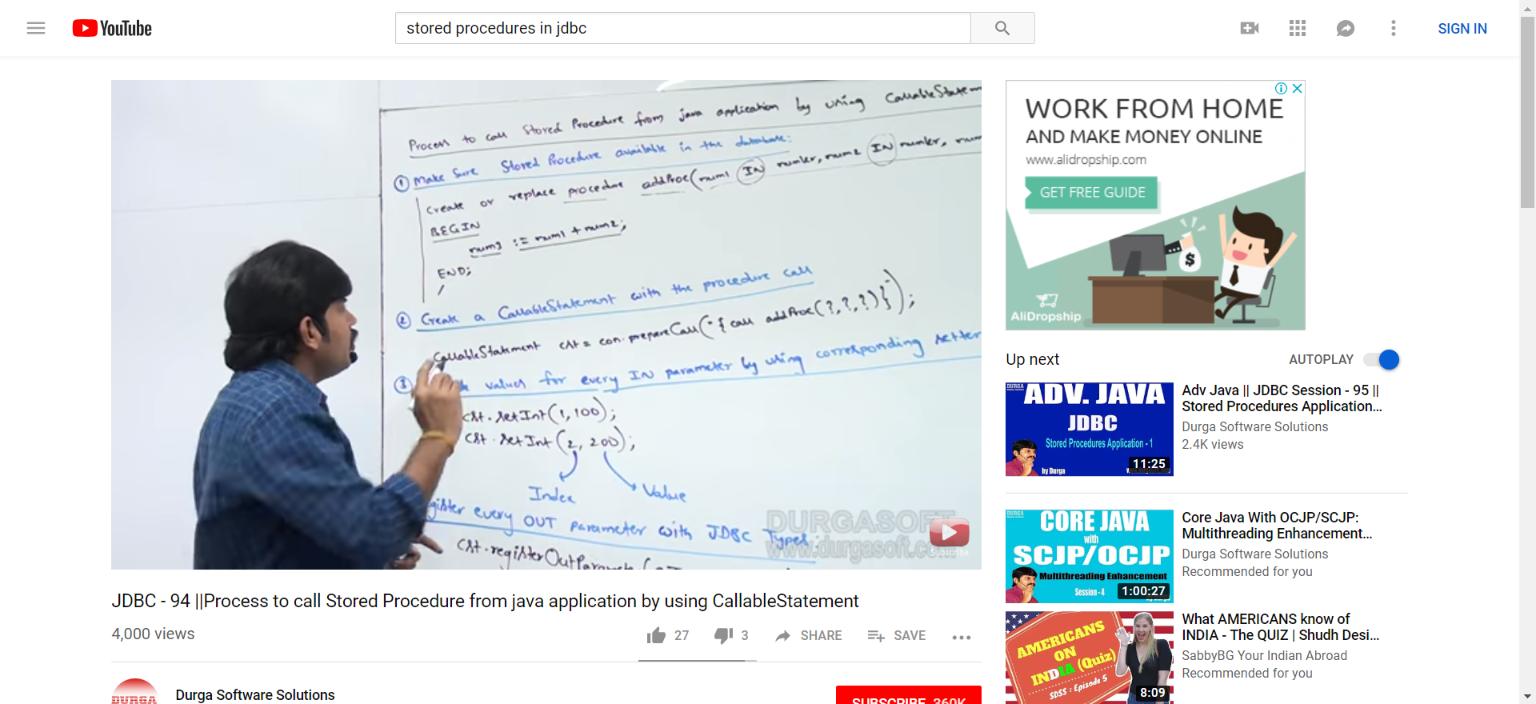 YouTube
stored procedures in jdbc
SIGN IN
Process to call Stored Procedure from java application by using CallableStatem
① Make Sure Stored Procedure available in the database:
create or replace procedure addProc(num1 IN number, num2 IN number, num
BEGIN
num3 := num1 + num2;
END;
/
② Create a CallableStatement with the procedure call
CallableStatement cst = con.prepareCall("{call addProc(?,?,?)}");
③ values for every IN parameter by using corresponding setter
cst.setInt(1,100);
cst.setInt(2, 200);
Index
Value
gister every OUT parameter with JDBC Types
cst.registerOutParamete
DURGASOFT
www.durgasoft.co
JDBC - 94 ||Process to call Stored Procedure from java application by using CallableStatement
4,000 views
27
3
SHARE
SAVE
DURGA
Durga Software Solutions
SUBSCRIBE 360K
WORK FROM HOME
AND MAKE MONEY ONLINE
www.alidropship.com
GET FREE GUIDE
$
AliDropship
Up next
AUTOPLAY
ADV. JAVA
JDBC
Stored Procedures Application - 1
by Durga
11:25
Adv Java || JDBC Session - 95 ||
Stored Procedures Application...
Durga Software Solutions
2.4K views
CORE JAVA
with
SCJP/OCJP
Multithreading Enhancement
Session - 4
1:00:27
Core Java With OCJP/SCJP:
Multithreading Enhancement...
Durga Software Solutions
Recommended for you
AMERICANS
ON
INDIA (Quiz)
SDSS : Episode 5
8:09
What AMERICANS know of
INDIA - The QUIZ | Shudh Desi...
SabbyBG Your Indian Abroad
Recommended for you